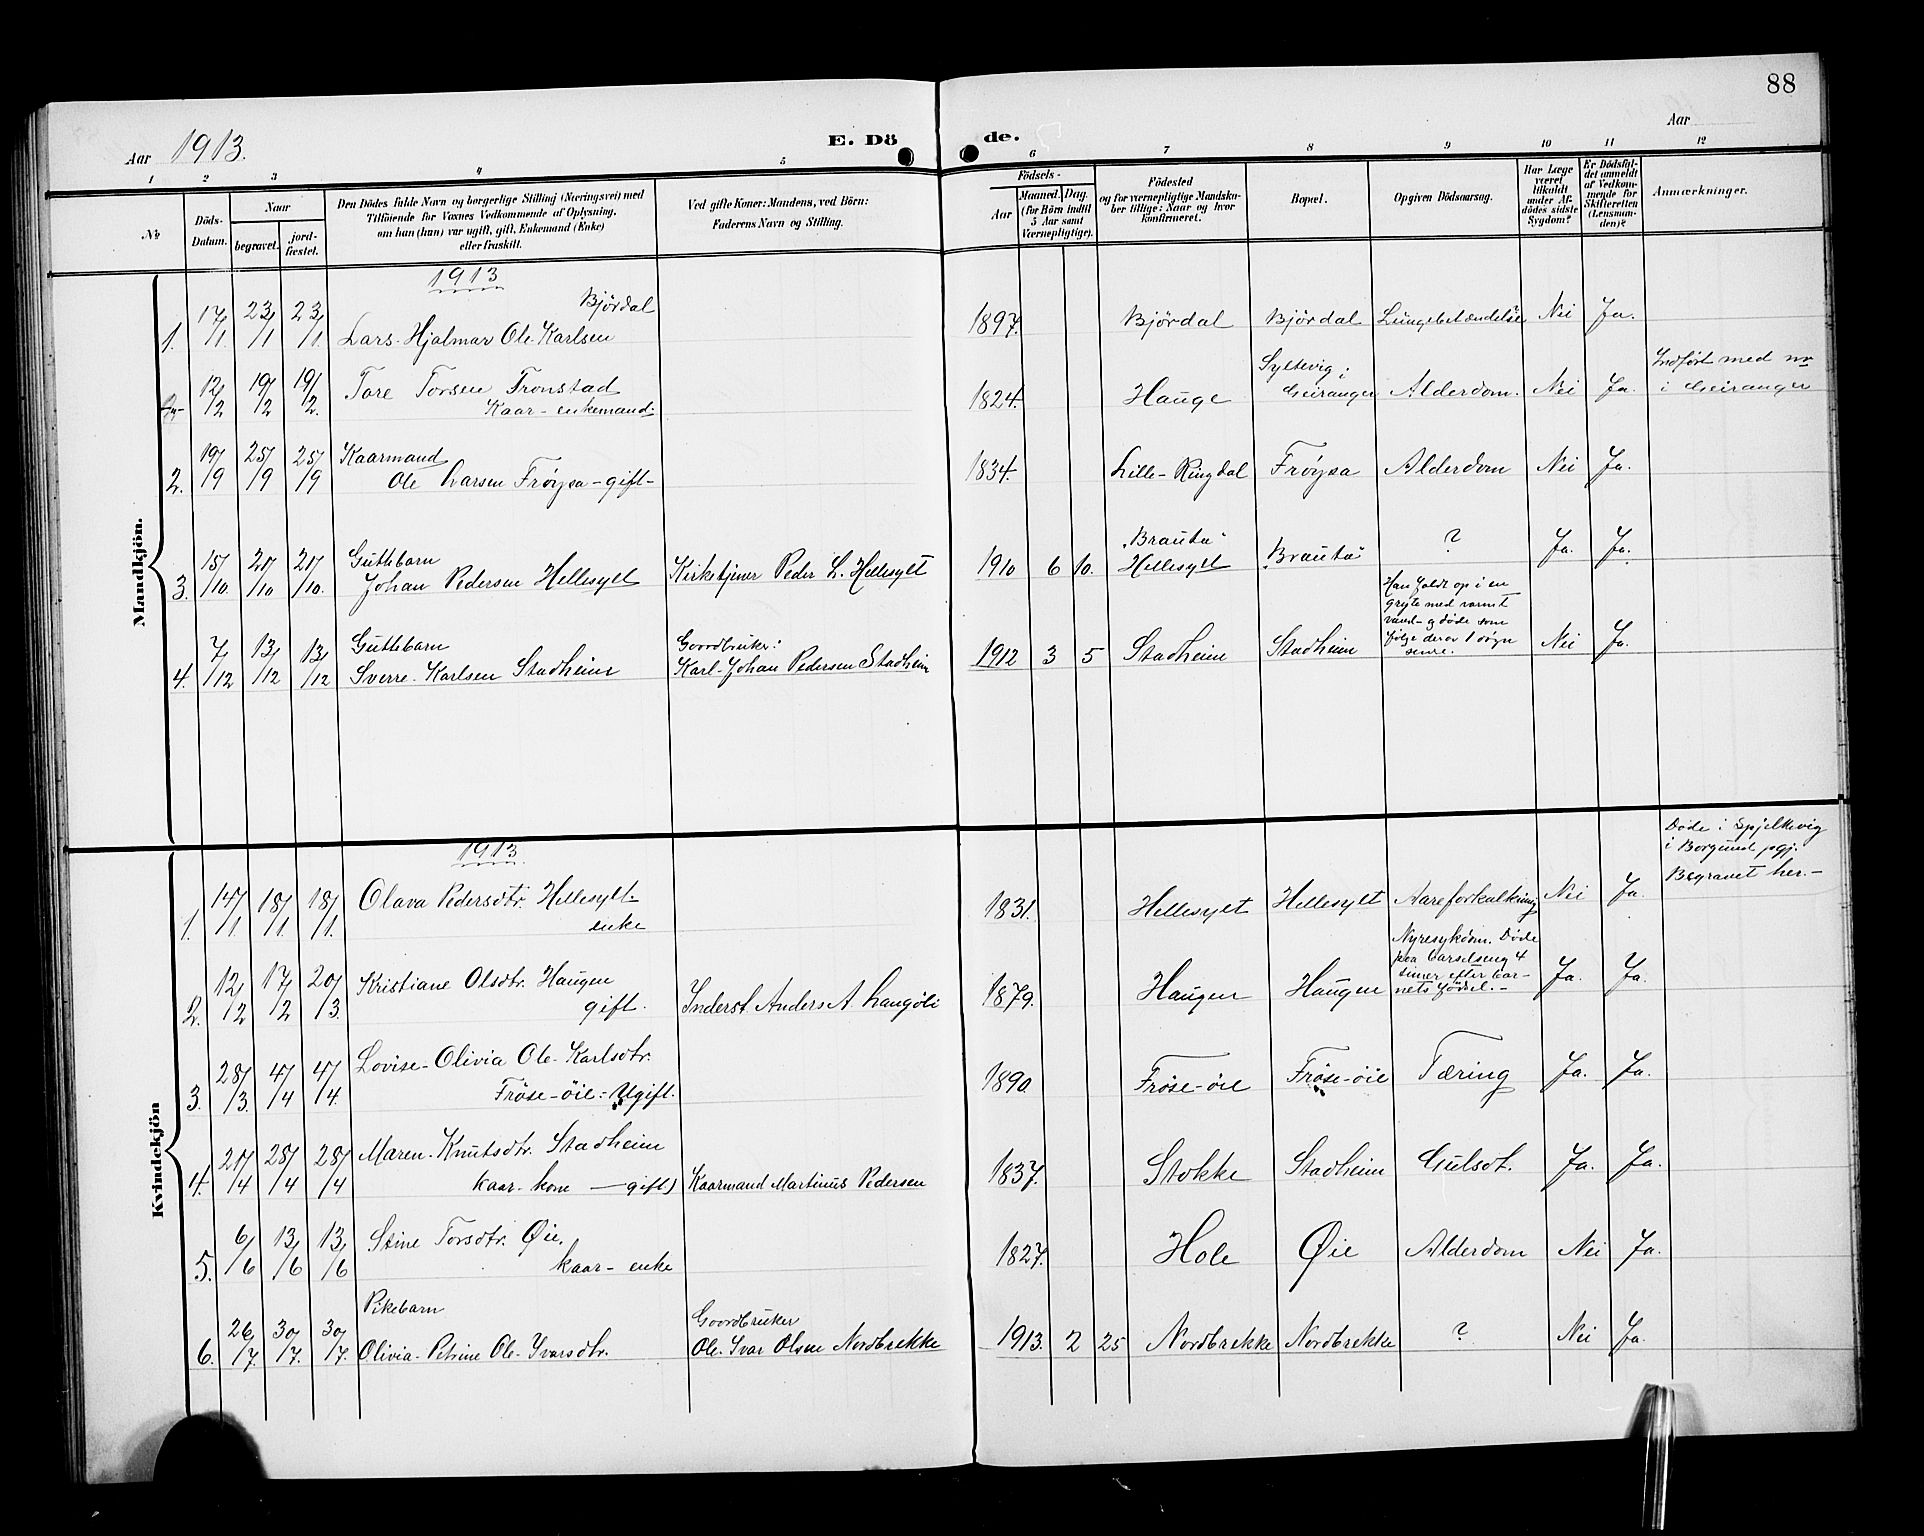 88
Aar 1913.
E. Dö de.
Aar
1 2 3 4 5 6 7 8 9 10 11 12
№
Döds-Datum.
Naar
begravet.
jord-fæstet.
Den Dödes fulde Navn og borgerlige Stilling (Næringsvei) med
Tilföiende for Voxnes Vedkommende af Oplysning,
om han (hun) var ugift, gift, Enkemand (Enke)
eller fraskilt.
Ved gifte Koner: Mandens, ved Börn:
Faderens Navn og Stilling.
Födsels-
Aar
Maaned. Dag.
(for Börn indtil
5 Aar samt
Værnepligtige).
Födested
og for værnepligtige Mandska-
ber tillige: Naar og hvor
konfirmeret.
Bopæl.
Opgiven Dödsaarsag.
Har Læge
været
tilkaldt
under Af-
dödes sidste
Sygdom?
Er Dödsfal-
det anmeldt
af Vedkom-
mende for
Skifteretten
(Lensman-
den)?
Anmærkninger.
Mandkjön.
1913
Bjórdal
1. 17/1 23/1 23/1 Lars-Hjalmar Ole-Karlsen 1897. Bjórdal Bjórdal Lungebetændelse? Nei Ja.
12/2 19/2 19/2. Tore Torsen Tronstad
Kaar-enkemand. 1824. Hauge Syltevig i
Geiranger Alderdom. Nei Ja. Indfört med no
i Geiranger
2. 19/9 25/9 25/9 Kaarmand
Ole Larsen Fröysa-gift- 1834. Lille-Ringdal Fröysa Alderdom Nei Ja.
3. 15/10. 20/10 20/10. Guttebarn
Johan Pedersen Hellesylt Kirketjener Peder L. Hellesylt 1910 6 10. „Brauta"
Hellesylt „Brauta" ? Ja. Ja.
4. 7/12 13/12 13/12 Guttebarn
Sverre-Karlsen Stadheim Goordbruker:
Karl-Johan Pedersen Stadheim 1912 3 5 Stadheim Stadheim Han faldt op i en
gryte med varmt
vand og døde som
følge derav 1 døgn
senre. Nei Ja.
Kvindekjön
1913
1. 14/1. 18/1. 18/1. Olava Pedersdtr. Hellesylt-
enke 1831. Hellesylt Hellesylt Aareforkalkning Nei Ja. Døde i Spjelkevig
i Borgund pgj.
Begravet her.-
2. 12/2 17/2 20/3. Kristiane Olsdtr. Haugen
gift. Inderst Anders A. Langöli 1879. Haugen Haugen Nyresykdom. Døde
paa barselseng 4
timer efter bar-
nets fødsel.- Ja. Ja.
3. 28/3. 4/4 4/4. Lovise-Olivia Ole-Karlsdtr.
Fröse-öie-Ugift. 1890. Fröse-öie Fröse-öie Tæring Ja. Ja.
4. 20/4 28/4 28/4 Maren-Knutsdtr. Stadheim
kaar-kone -gift) Kaarmand Martinus Pedersen 1837. Stokke Stadheim Gulsot. Ja. Ja.
5. 6/6 13/6 13/6 Stine Torsdtr. Øie.
kaar-enke 1827. Hole Øie Alderdom Nei Ja.
6. 26/7 30/7. 30/7. Pikebarn
Olivia-Petrine Ole-Ivarsdtr. Goordbruker
Ole-Ivar Olsen Nordbrekke 1913. 2 25 Nordbrekke Nordbrekke ? Nei Ja.